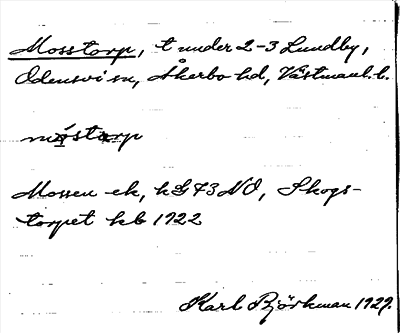 Mosstorp, t under 2-3 Lundby,
Odensvi sn, Åkerbo hd, Västmanl. l.
måstorp
Mossen ek, h G 73 NO, Skogs-
torpet hb 1722
Karl Björkman 1927.